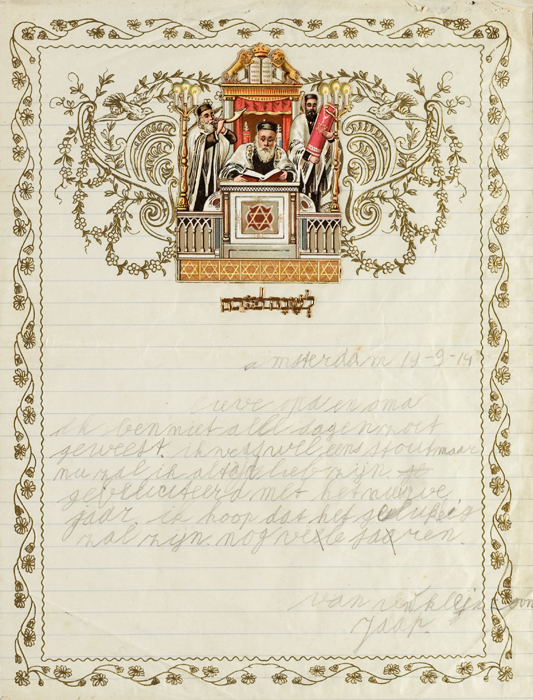 לשנה טובה
amsterdam 19-9-14
lieve opa en oma
ik ben niet alle dagen zoet
geweest. ik was wel eens stout maar
nu zal ik lief zijn.
gefeliciteerd met het
jaar. ik hoop dat het
zal zijn nog jaaren.
van
Jaap.